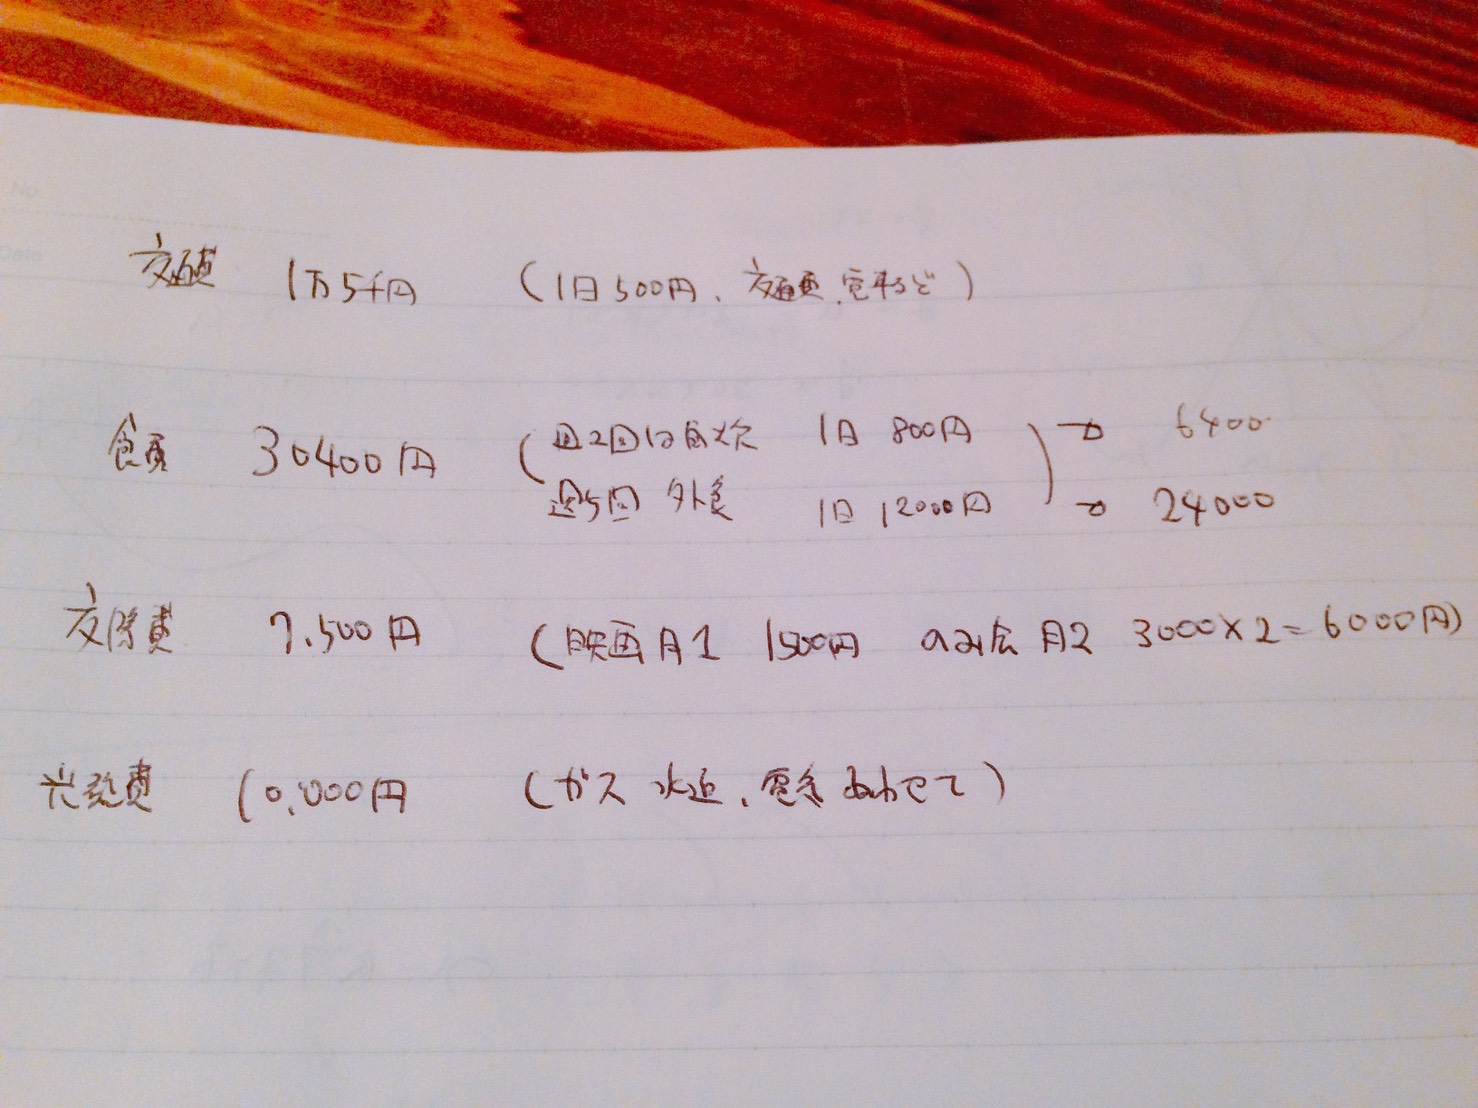 交通費 1万5千円 (1日500円、交通費、電車など)
食費 30400円 (週2回は自炊 1日 800円 ) → 6400
週5回 外食 1日 12000円 → 24000
交際費 7.500円 (映画月1 1500円 のみ広 月2 3000×2=6000円)
光熱費 10.000円 (ガス 水道、電気 あわせて)
No.
Date